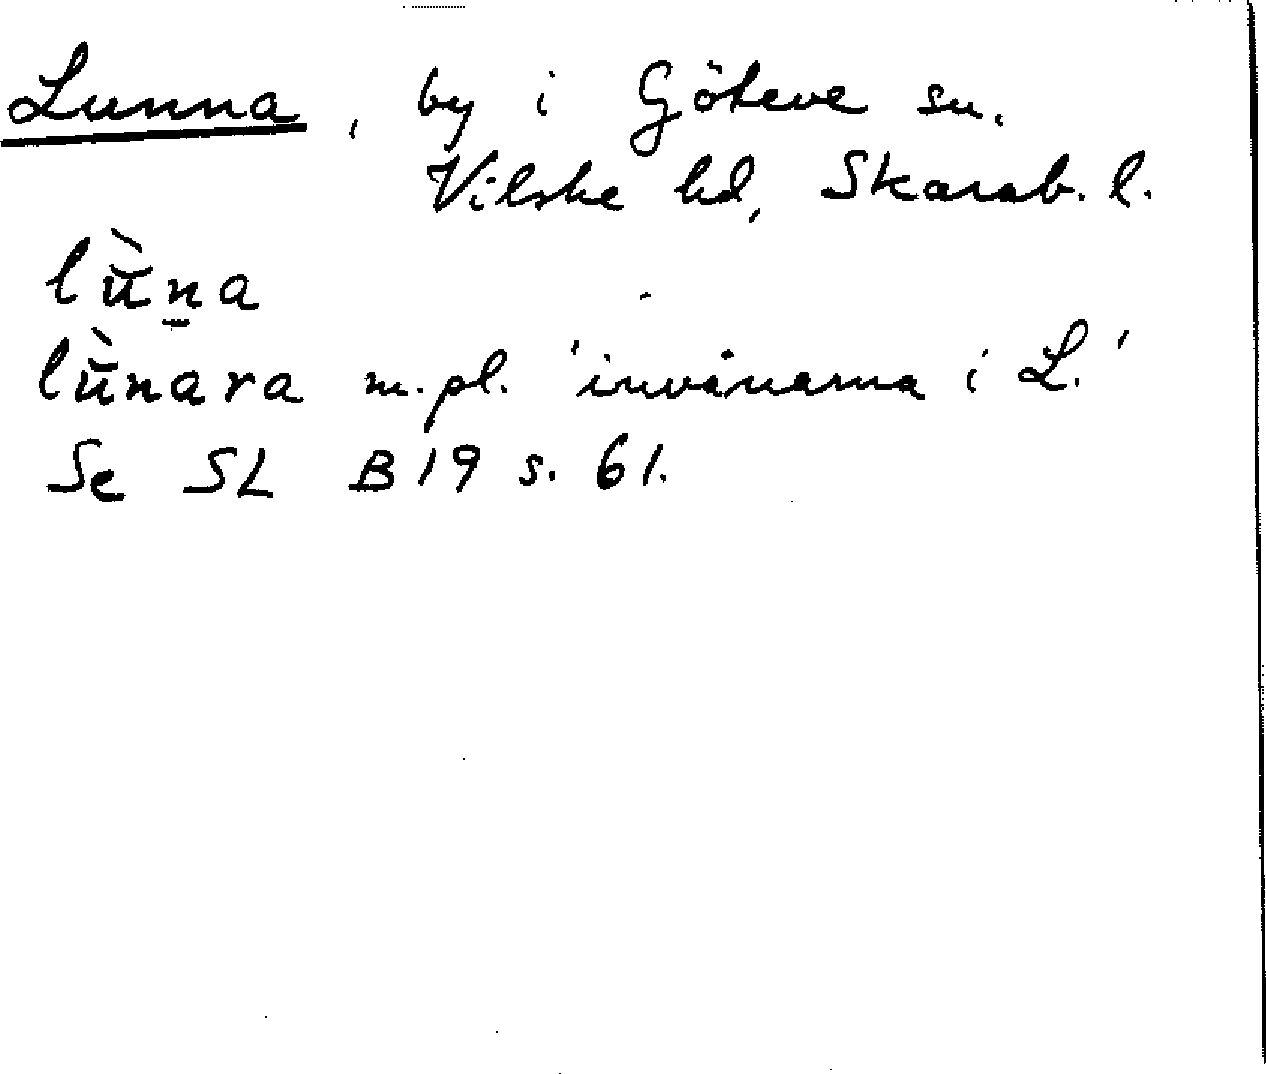 Lunna, by i Göteve sn.
Vilske hd, Skarab. l.
lŭ̀n̠a
lŭ̀nara m.pl. 'invånarna i L.'
Se SL B 19 s. 61.